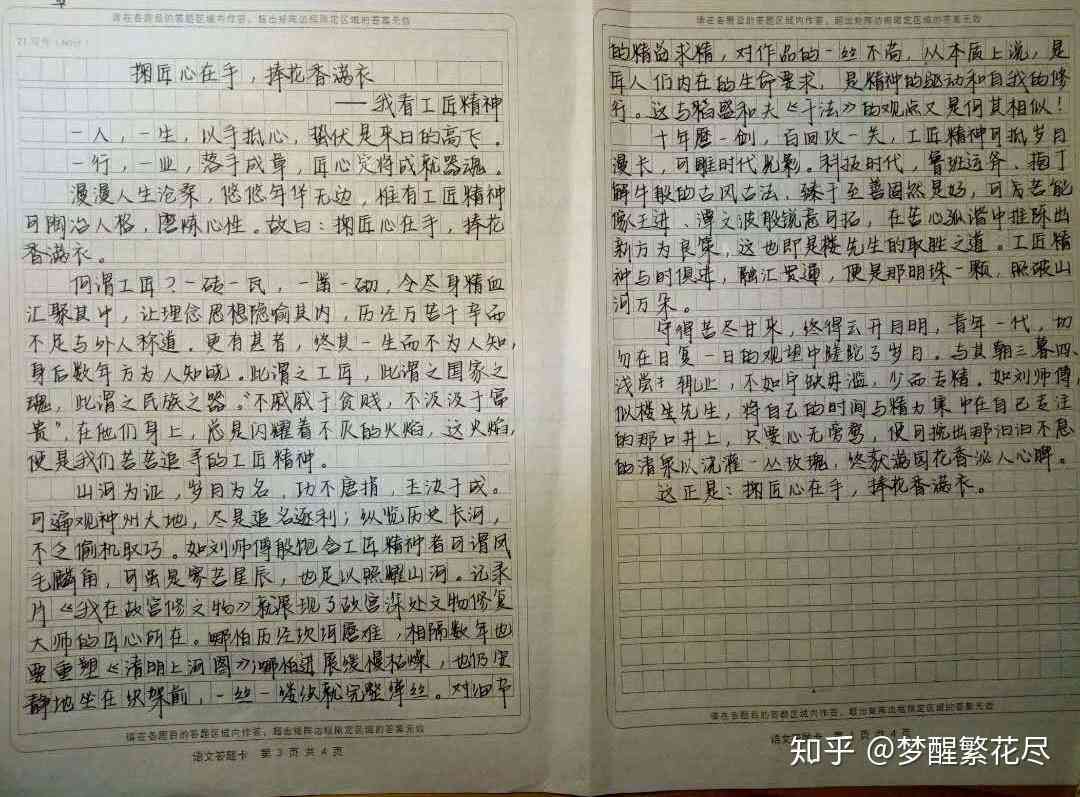 请在各题目的答题区域内作答，超出矩阵边框限定区域的答案无效
21.写作（60分）
掬匠心在手，捧花香满衣
——我看工匠精神
一人，一生，以手抵心，蛰伏是来日的高飞。
一行，一业，落手成章，匠心定将成就器魂。
漫漫人生沧桑，悠悠年华无边，惟有工匠精神
可陶冶人格，磨炼心性。故曰：掬匠心在手，捧花
香满衣。
何谓工匠？一砖一瓦，一凿一砌，令尽身精血
汇聚其中，让理念思想隐喻其内，历经万苦千辛而
不足与外人称道。更有甚者，终其一生而不为人知，
身后数年方为人知晓。此谓之工匠，此谓之国家之
魂，此谓之民族之器。“不戚戚于贫贱，不汲汲于富
贵”，在他们身上，总是闪耀着不灰的火焰，这火焰，
便是我们苦苦追寻的工匠精神。
山河为证，岁月为名，功不唐捐，玉汝于成。
可遍观神州大地，尽是追名逐利；纵览历史长河，
不乏偷机取巧。如刘师傅般饱含工匠精神者可谓凤
毛麟角，可虽是寥若星辰，也足以照耀山河。记录
片《我在故宫修文物》就展现了故宫深处文物修复
大师的匠心所在。哪怕历经坎坷磨难，相隔数年也
要重塑《清明上河图》；哪怕进展缓慢枯燥，也仍安
静地坐在织架前，一丝一缕织就完整缂丝。对细节
请在各题目的答题区域内作答，超出矩阵边框限定区域的答案无效
语文答题卡 第 3 页 共 4 页
请在各题目的答题区域内作答，超出矩阵边框限定区域的答案无效
的精益求精，对作品的一丝不苟，从本质上说，是
匠人们内在的生命要求，是精神的驱动和自我的修
行。这与稻盛和夫《干法》的观点又是何其相似！
十年磨一剑，百回攻一关，工匠精神可抵岁月
漫长，可雕时代光影。科技时代，鲁班运斧、庖丁
解牛般的古风古法，臻于至善固然是好，可若能
像王进、谭文波般锐意可拓，在苦心孤诣中推陈出
新方为良策，这也即是楼先生的取胜之道。工匠精
神与时俱进，融汇贯通，便是那明珠一颗，照破山
河万朵。
守得苦尽甘来，终得云开月明，青年一代，切
勿在日复一日的观望中蹉跎了岁月。与其朝三暮四、
浅尝十种业，不如宁缺毋滥，少而去精。如刘师傅，
似楼先先生，将自己的时间与精力集中在自己专注
的那口井上，只要心无旁鹜，便可挖出那汩汩不息
的清泉以浇灌一丛玫瑰，终获满园花香沁人心脾。
这正是：掬匠心在手，捧花香满衣。
请在各题目的答题区域内作答，超出矩阵边框限定区域的答案无效
语文答题卡 页 共 4 页
知乎 @梦醒繁花尽